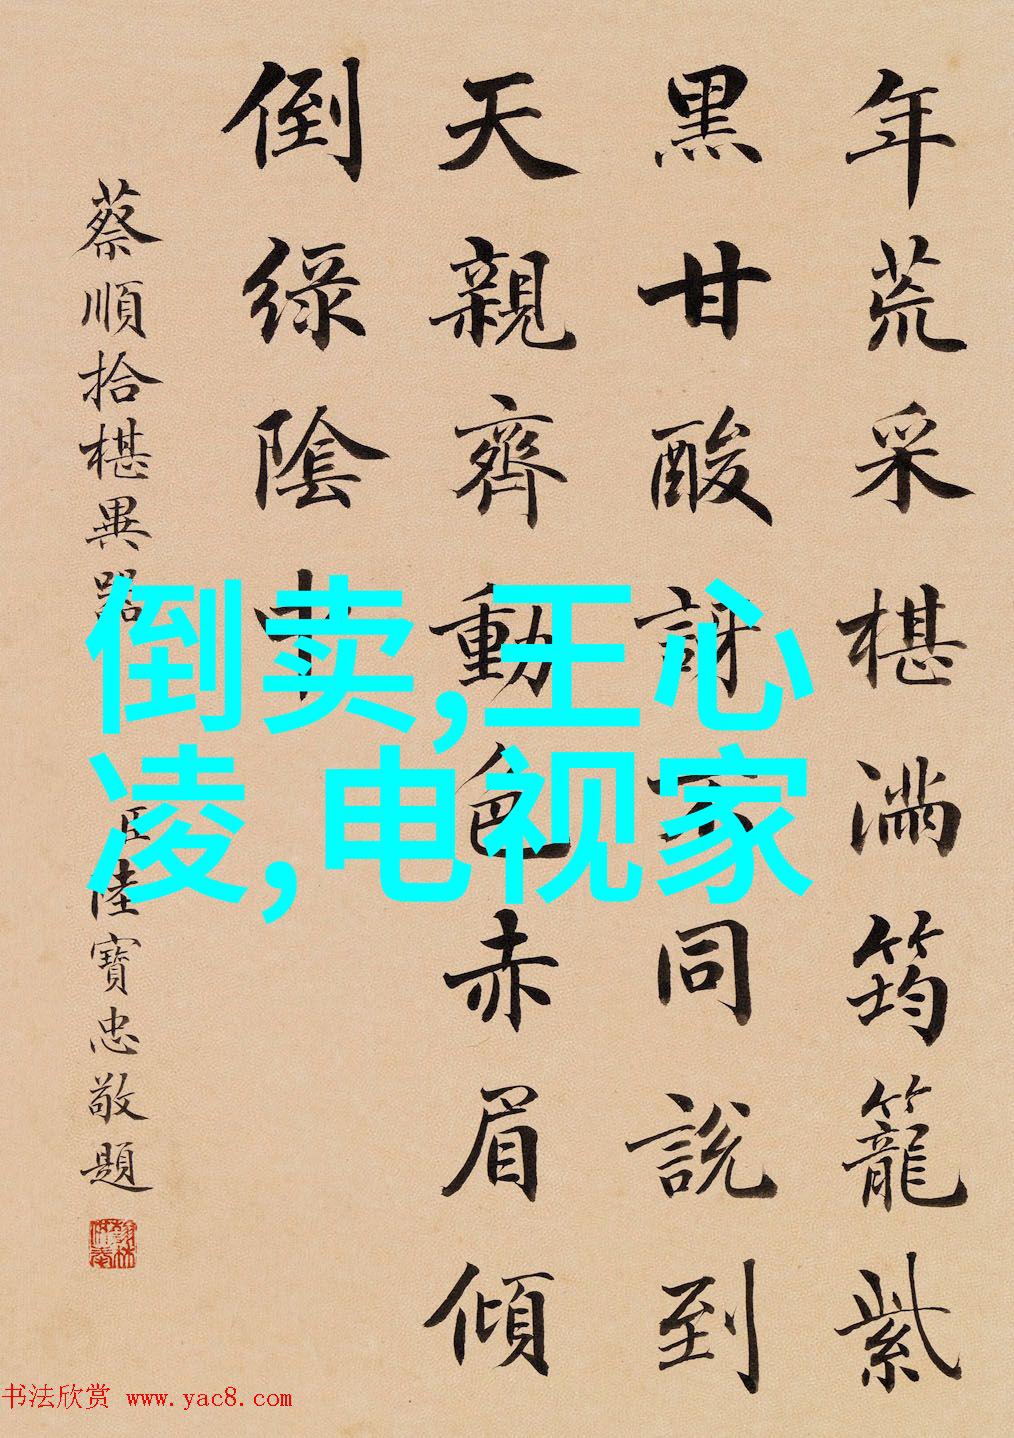 年荒采椹滿筠籠紫
黑甘酸訝不同說到
天親齊動色赤眉傾
倒綠陰中
蔡順拾椹異器
臣陸寶忠敬題
倒卖,王心
凌,电视家
书法欣赏 www.yac8.com